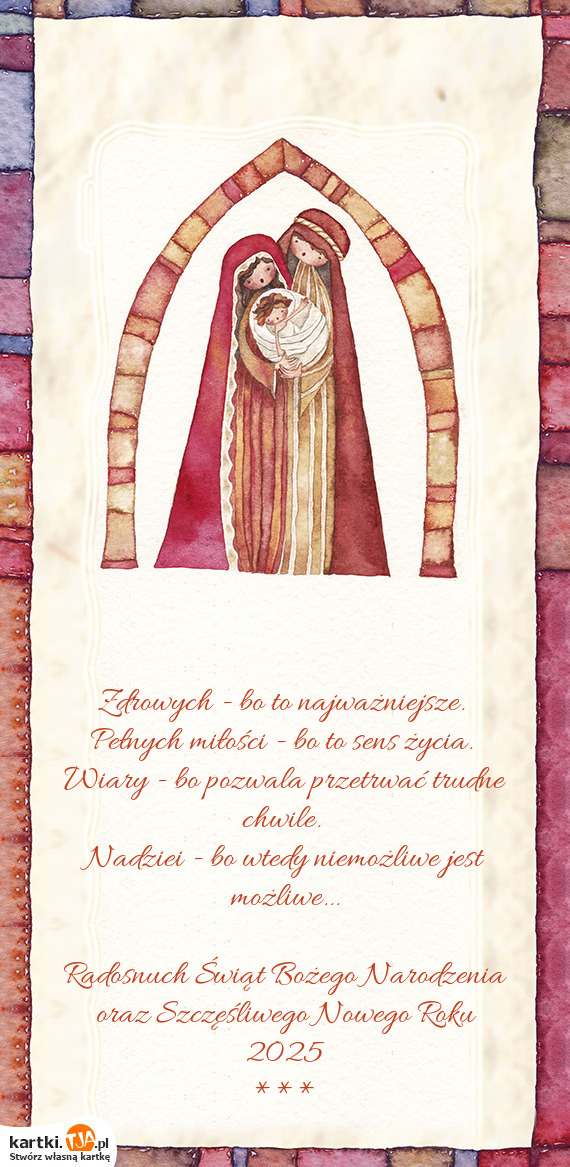 Zdrowych - bo to najważniejsze.
Pełnych miłości - bo to sens życia.
Wiary - bo pozwala przetrwać trudne
chwile.
Nadziei - bo wtedy niemożliwe jest
możliwe...
Radosnuch Świąt Bożego Narodzenia
oraz Szczęśliwego Nowego Roku
2025
* * *
kartki.TJA.pl
Stwórz własną kartkę